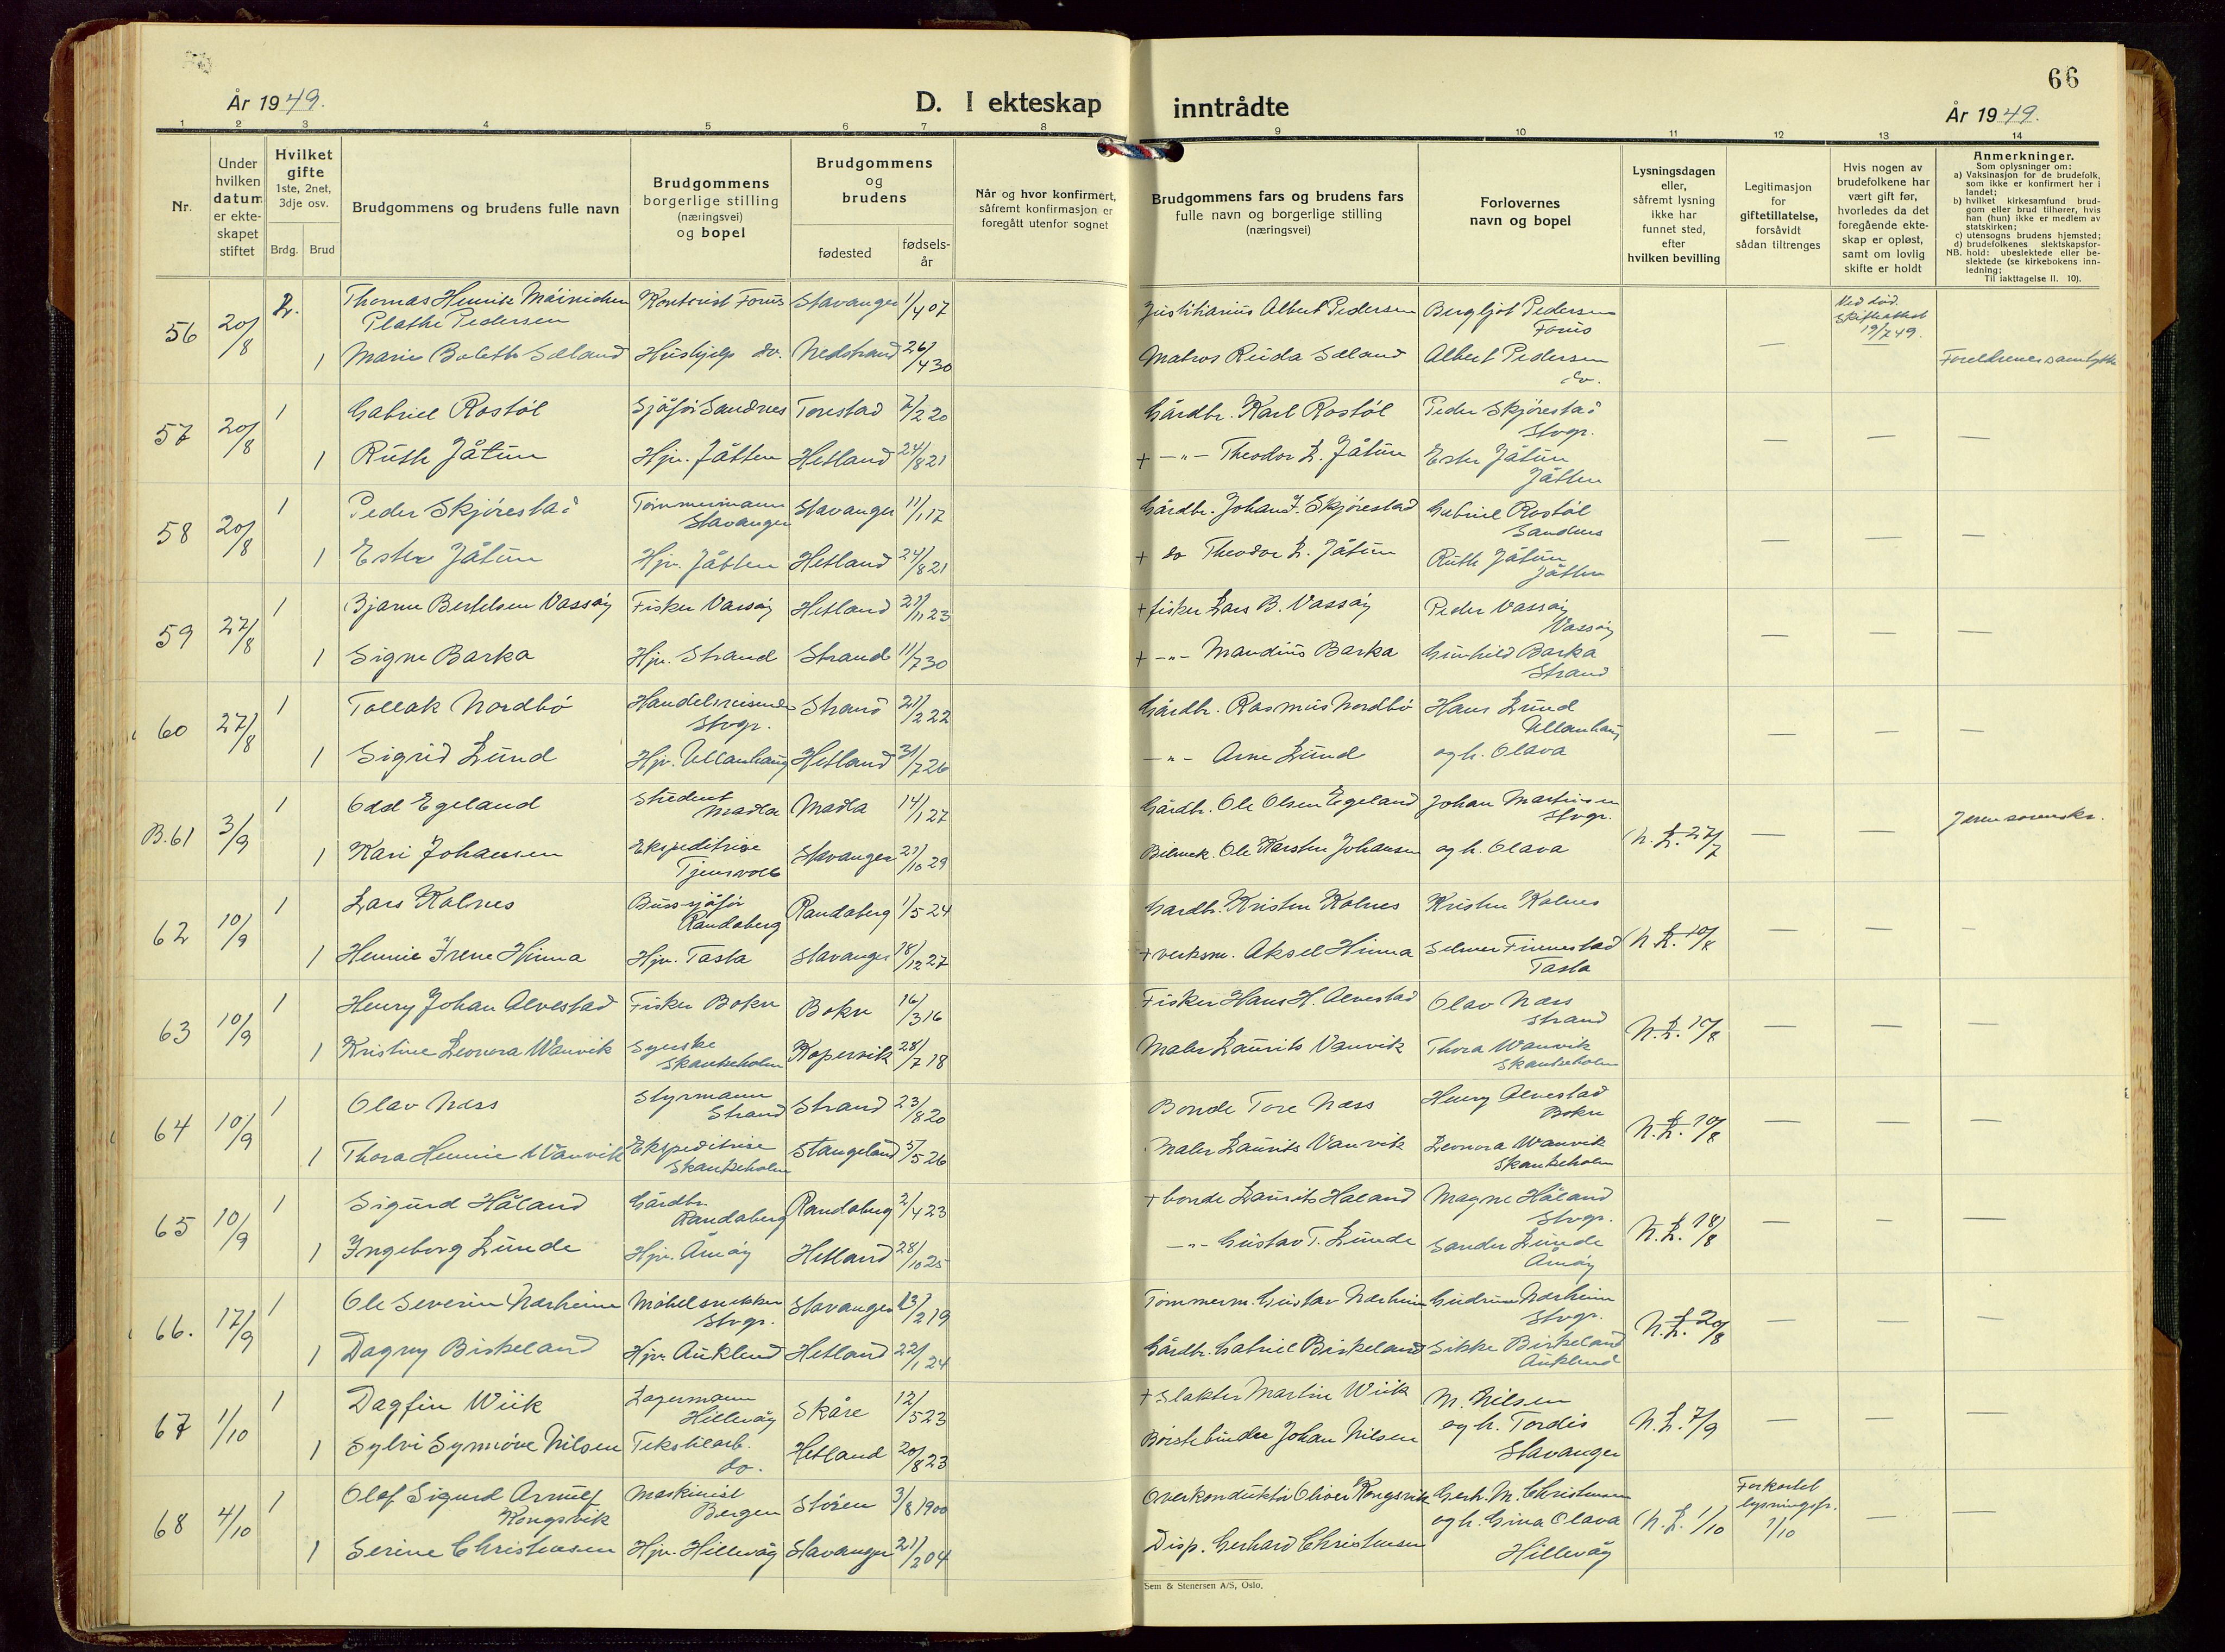 66
År 1949.
D. I ekteskap inntrådte
År 1949.
1 2 3 4 5 6 7 8 9 10 11 12 13 14
Nr.
Under hvilken datum er ekteskapet stiftet
Hvilket gifte 1ste, 2net, 3dje osv.
Brdg. Brud
Brudgommens og brudens fulle navn
Brudgommens borgerlige stilling (næringsvei) og bopel
Brudgommens og brudens
fødested
fødsels-år
Når og hvor konfirmert, såfremt konfirmasjon er foregått utenfor sognet
Brudgommens fars og brudens fars fulle navn og borgerlige stilling (næringsvei)
Forlovernes navn og bopel
Lysningsdagen eller, såfremt lysning ikke har funnet sted, efter hvilken bevilling
Legitimasjon for giftetillatelse, forsåvidt sådan tiltrenges
Hvis nogen av brudefolkene har vært gift før, hvorledes da det foregående ekteskap er opløst, samt om lovlig skifte er holdt
Anmerkninger.
Som oplysninger om:
a) Vaksinasjon for de brudefolk, som ikke er konfirmert her i landet;
b) hvilket kirkesamfund brudgom eller brud tilhører, hvis han (hun) ikke er medlem av statskirken;
c) utensogns brudens hjemsted;
d) brudefolkenes slektskapsforhold: ubeslektede eller beslektede (se kirkebokens innledning;
NB. Til iakttagelse II. 10).
56 20/8 2. Thomas Henrik Møinichen Plathe Pedersen Kontorist Forus Stavanger 1/4 07 Justitiarius Albert Pedersen Bergljot Pedersen Forus Ved død. Skifteattest 19/7 49.
1 Marie Boleth Sæland Hushjelp do. Nedstrand 26/4 30 Matros Reida Sæland Albert Pedersen do. — Foreldrenes samtykke
57 20/8 1 Gabriel Rostøl Sjåfør Sandnes Torestad 7/2 20 Gårdbr. Karl Rostøl Peder Skjørestad Stvgr.
1 Ruth Jåtun Hjv. Jåtten Hetland 24/8 21 + —"— Theodor L. Jåtun Ester Jåtun Jåtten — — —
58 20/8 1 Peder Skjørestad Tømmermann Stavanger Stavanger 11/1 17 Gårdbr. Johan J. Skjørestad Gabriel Rostøl Sandnes
1 Ester Jåtun Hjv. Jåtten Hetland 24/8 21 + do Theodor L. Jåtun Ruth Jåtun Jåtten — — —
59 27/8 1 Bjarne Bertelsen Vassøy Fisker Vassøy Hetland 27/11 23 + fisker Lars B. Vassøy Peder Vassøy Vassøy
1 Signe Barka Hjv. Strand Strand 11/7 30 + —"— Mandius Barka Gunhild Barka Strand — — —
60 27/8 1 Tollak Nordbø Handelsreisende Stvgr. Strand 21/2 22 Gårdbr. Rasmus Nordbø Hans Lund Ullanhaug
1 Sigrid Lund Hjv. Ullanhaug Hetland 31/7 26 —"— Arne Lund og h. Olava — — —
B.61 3/9 1 Odd Egeland Student Madla Madla 14/1 27 Gårdbr. Ole Olsen Egeland Johan Martinsen Stvgr.
1 Kari Johansen Ekspeditrise Tjensvoll Stavanger 21/10 29 Bilmek. Ole Karsten Johansen og h. Olava N.L. 27/7 — —
62 10/9 1 Lars Kalnes Bussjåfør Randaberg Randaberg 1/5 24 Gardbr. Kristen Kalnes Kristen Kalnes
1 Hennie Irene Hinna Hjv. Tasta Stavanger 18/12 27 + verksm. Aksel Hinna Selmer Finnestad Tasta N.L. 10/8 — — —
63 10/9 1 Henry Johan Alvestad Fisker Bokn Bokn 16/3 16 Fisker Hans H. Alvestad Olav Næss Strand
1 Kristine Leonora Wanvik Syerske Skankeholm Kopervik 28/7 18 Maler Laurits Vanvik Thora Wanvik Skankeholm N.L. 10/8 — — —
64 10/9 1 Olav Næss Styrmann Strand Strand 23/8 20 Bonde Tore Næss Henry Alvestad Bokn
1 Thora Hennie Wanvik Ekspeditrise Skankeholm Stangeland 5/5 26 Maler Laurits Vanvik Leonora Wanvik Skankeholm N.L. 10/8 — — —
65 10/9 1 Sigurd Håland Gårdbr. Randaberg Randaberg 2/4 23 + bonde Laurits Haland Magne Håland Stvgr.
1 Ingeborg Lunde Hjv. Åmøy Hetland 28/10 25 —"— Gustav T. Lunde Sander Lunde Åmøy N.L. 18/8 — — —
66. 17/9 1 Ole Severin Narheim Møbelsnekker Stvgr. Stavanger 13/2 19 Tømmerm. Gustav Narheim Gudrun Narheim Stvgr.
1 Dagny Birkeland Hjv. Auklend Hetland 22/1 24 Gårdbr. Gabriel Birkeland Sikke Birkeland Auklend N.L. 20/8 — — —
67 1/10 1 Dagfin Wiik Lagermann Hillevåg Skåre 12/5 23 + Slakter Martin Wiik M. Nilsen
1 Sylvi Synnøve Nilsen Tekstilarb. do. Hetland 20/8 23 Børstebinder Johan Nilsen og h. Tordis Stavanger N.L. 7/9 — — —
68 4/10 1 Olaf Sigurd Arnulf Kongsvik Maskinist Bergen Støren 3/8 1900 Overkonduktør Oliver Kongsvik Gerh. M. Christensen Forkortet lysningsfr. 1/10
1 Serine Christensen Hjv. Hillevåg Stavanger 21/2 04 Disp. Gerhard Christensen og h. Gina Olava Hillevåg N.L. 1/10 — —
Sem & Stenersen A/S, Oslo.